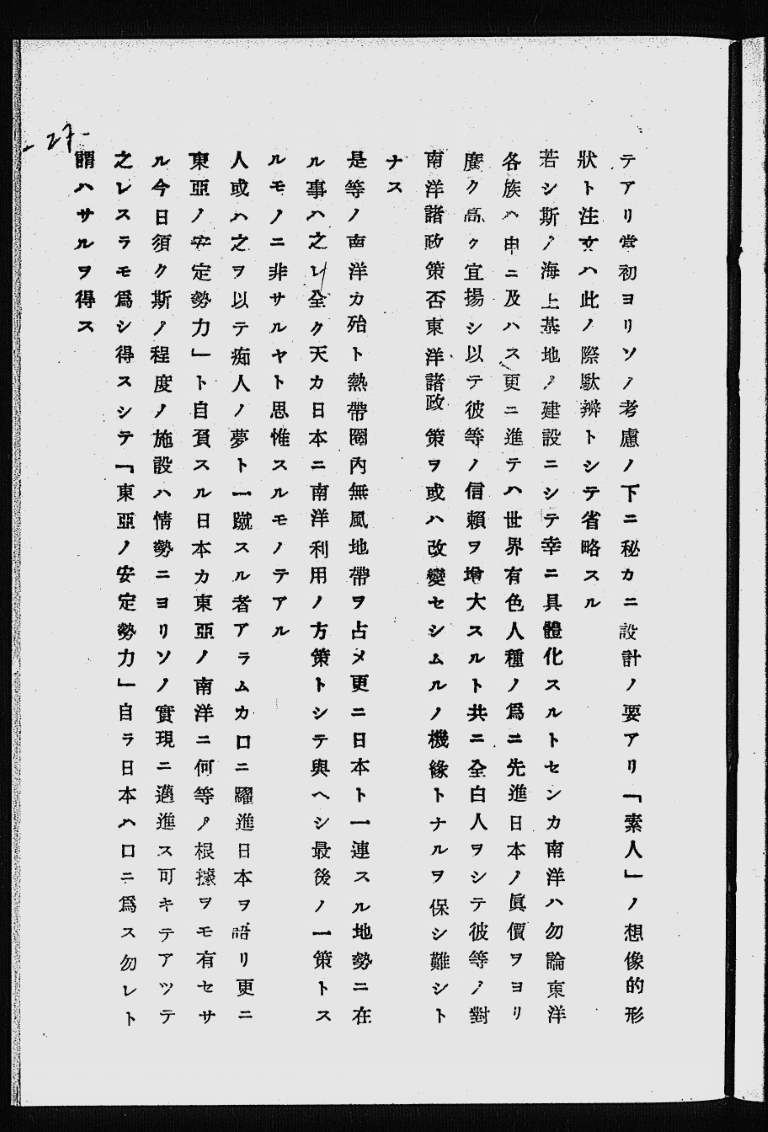 -27-
テアリ當初ヨリソノ考慮ノ下ニ秘カニ設計ノ要アリ「素人」ノ想像的形
狀ト注文ハ此ノ際駄辨トシテ省略スル
若シ斯ノ海上基地ノ建設ニシテ幸ニ具體化スルトセンカ南洋ハ勿論東洋
各族ハ申ニ及ハス更ニ進テハ世界有色人種ノ爲ニ先進日本ノ眞價ヲヨリ
廣ク高ク宜揚シ以テ彼等ノ信頼ヲ增大スルト共ニ全白人ヲシテ彼等ノ對
南洋諸政策否東洋諸政策ヲ或ハ改變セシムルノ機緣トナルヲ保シ難シト
ナス
是等ノ南洋カ殆ト熱帶圈内無風地帶ヲ占メ更ニ日本ト一連スル地勢ニ在
ル事ハ之レ全ク天カ日本ニ南洋利用ノ方策トシテ與ヘシ最後ノ一策トス
ルモノニ非サルヤト思惟スルモノテアル
人或ハ之ヲ以テ痴人ノ夢ト一蹴スル者アラムカ口ニ躍進日本ヲ語リ更ニ
東亞ノ安定勢力」ト自負スル日本カ東亞ノ南洋ニ何等ノ根據ヲモ有セサ
ル今日須ク斯ノ程度ノ施設ハ情勢ニヨリソノ實現ニ邁進ス可キテアツテ
之レスラモ爲シ得スシテ「東亞ノ安定勢力」自ラ日本ハ口ニ爲ス勿レト
謂ハサルヲ得ス